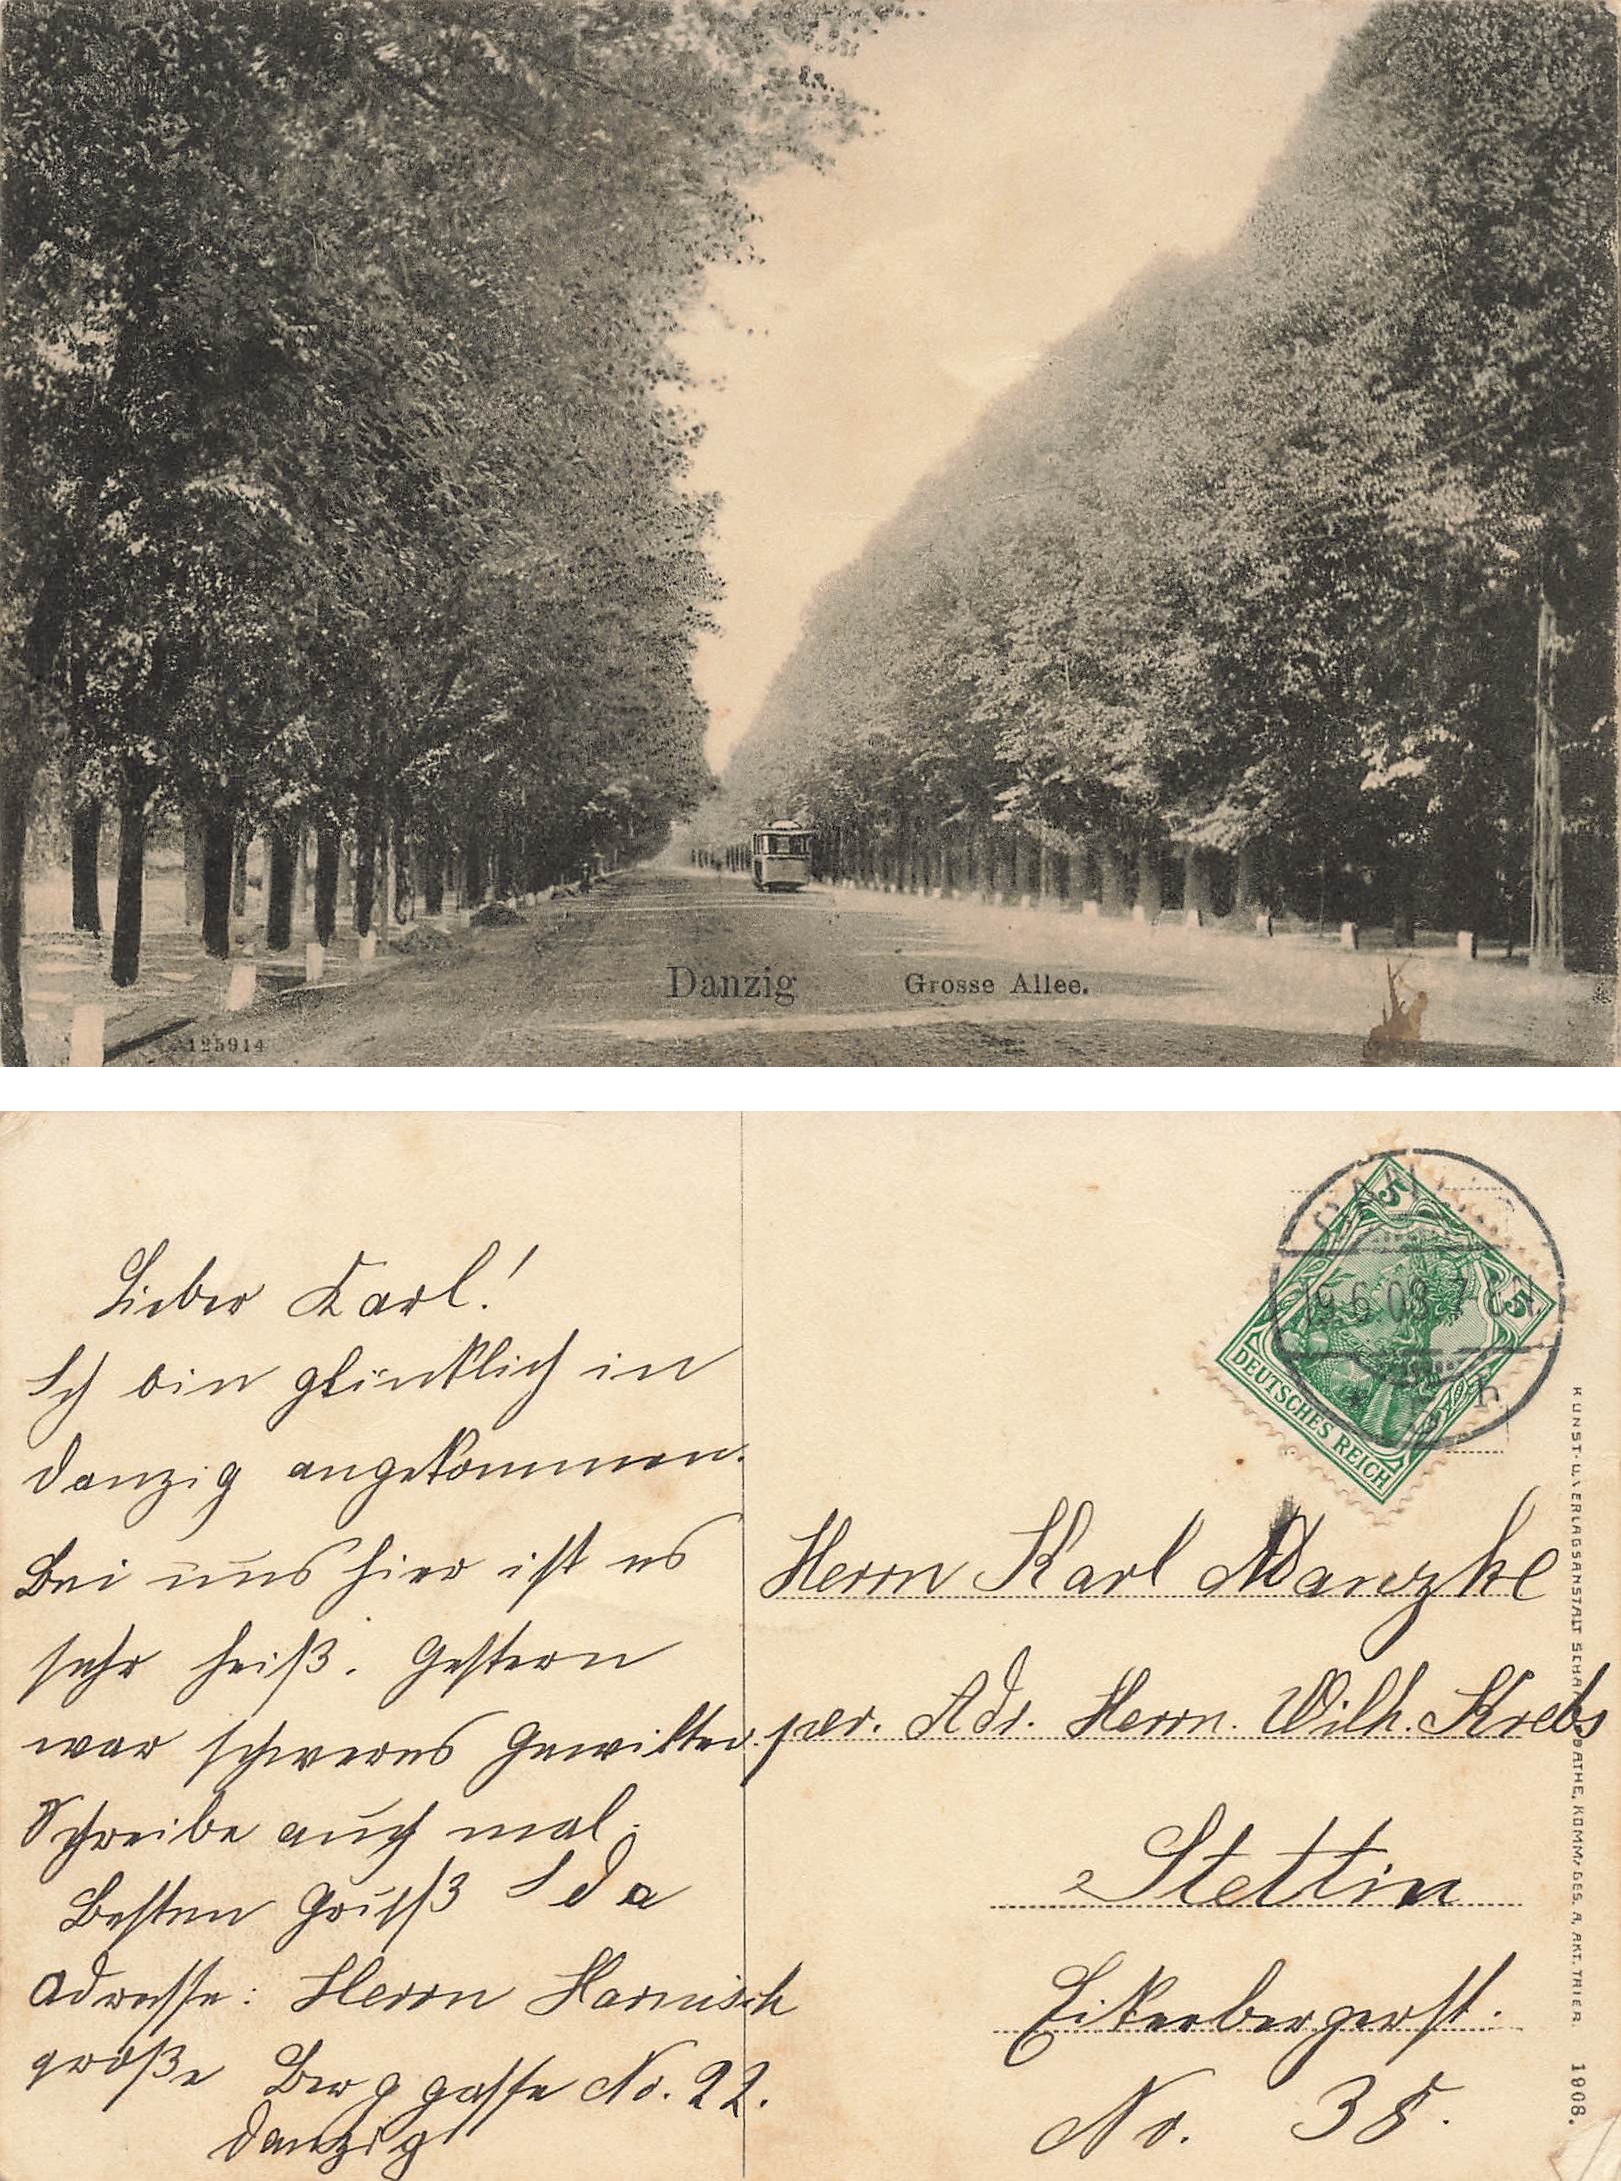 Danzig Grosse Allee.
125914
Lieber Karl!
Ich bin glücklich in
Danzig angekommen.
Bei uns hier ist es
sehr heiß. Gestern
war schweres Gewitter.
Schreibe auch mal.
Besten Gruß Ida
Adresse: Herrn Harnisch
große Berggasse No. 22.
Danzig
DANZIG
19.6.08.7-8N.
* h
5
5
DEUTSCHES REICH
Herrn Karl Manzke
per. Adr. Herrn. Wilh. Krebs
Stettin
Eckerbergerst.
No. 38.
KUNST- U. VERLAGSANSTALT SCHAAR & DATHE, KOMM. GES. A. AKT. TRIER. 1908.